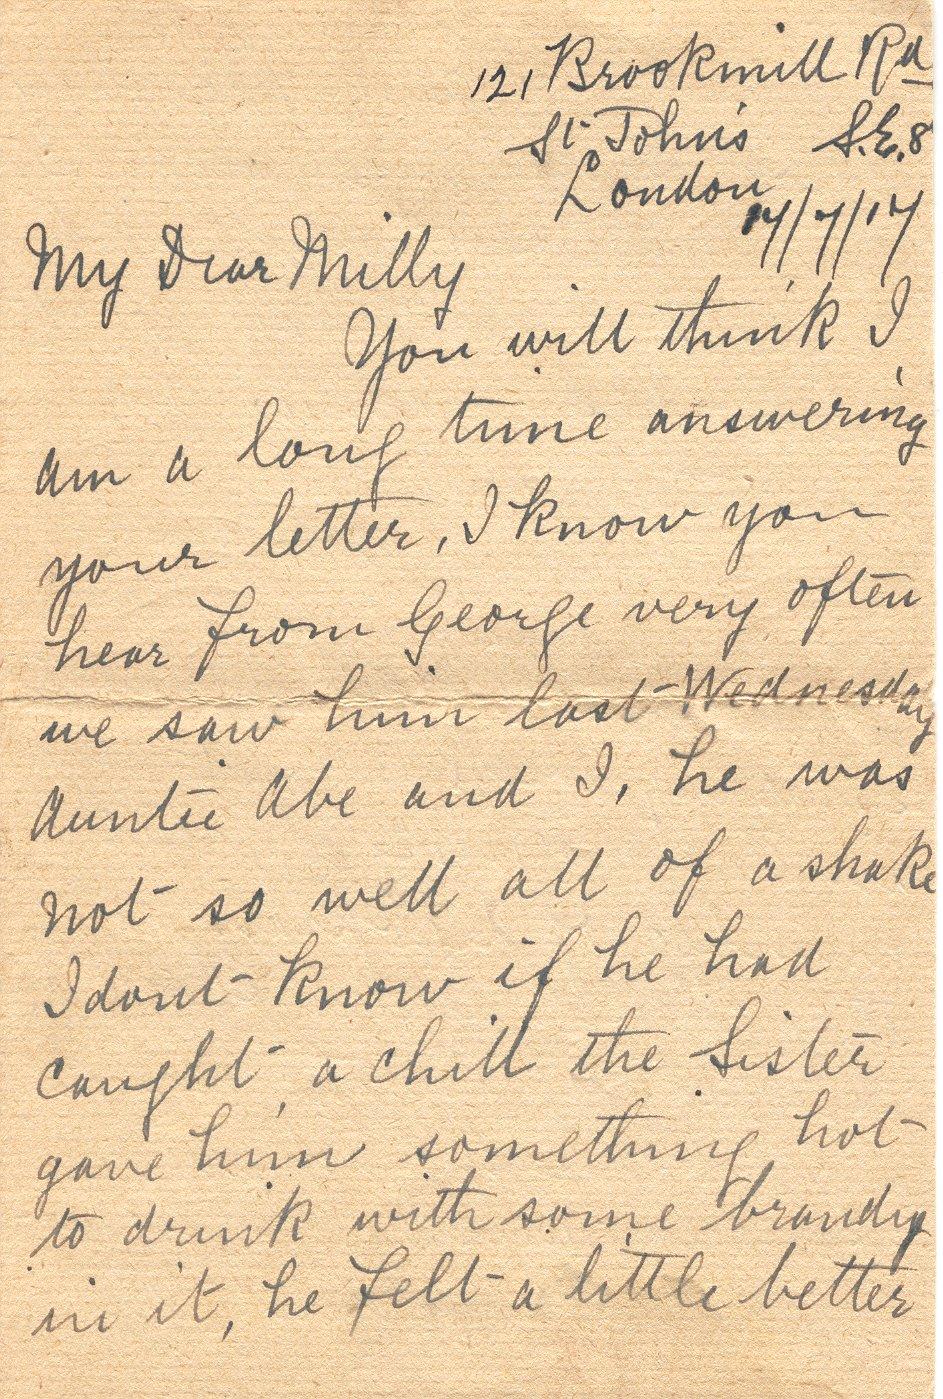 121 Brookmill Rd
St John's S.E.8
London
17/7/17
My Dear Milly
You will think I
am a long time answering
your letter, I know you
hear from George very often
we saw him last Wednesday
Auntie Abe and I, he was
not so well all of a shake
I dont know if he had
caught a chill the Sister
gave him something hot
to drink with some brandy
in it, he felt a little better